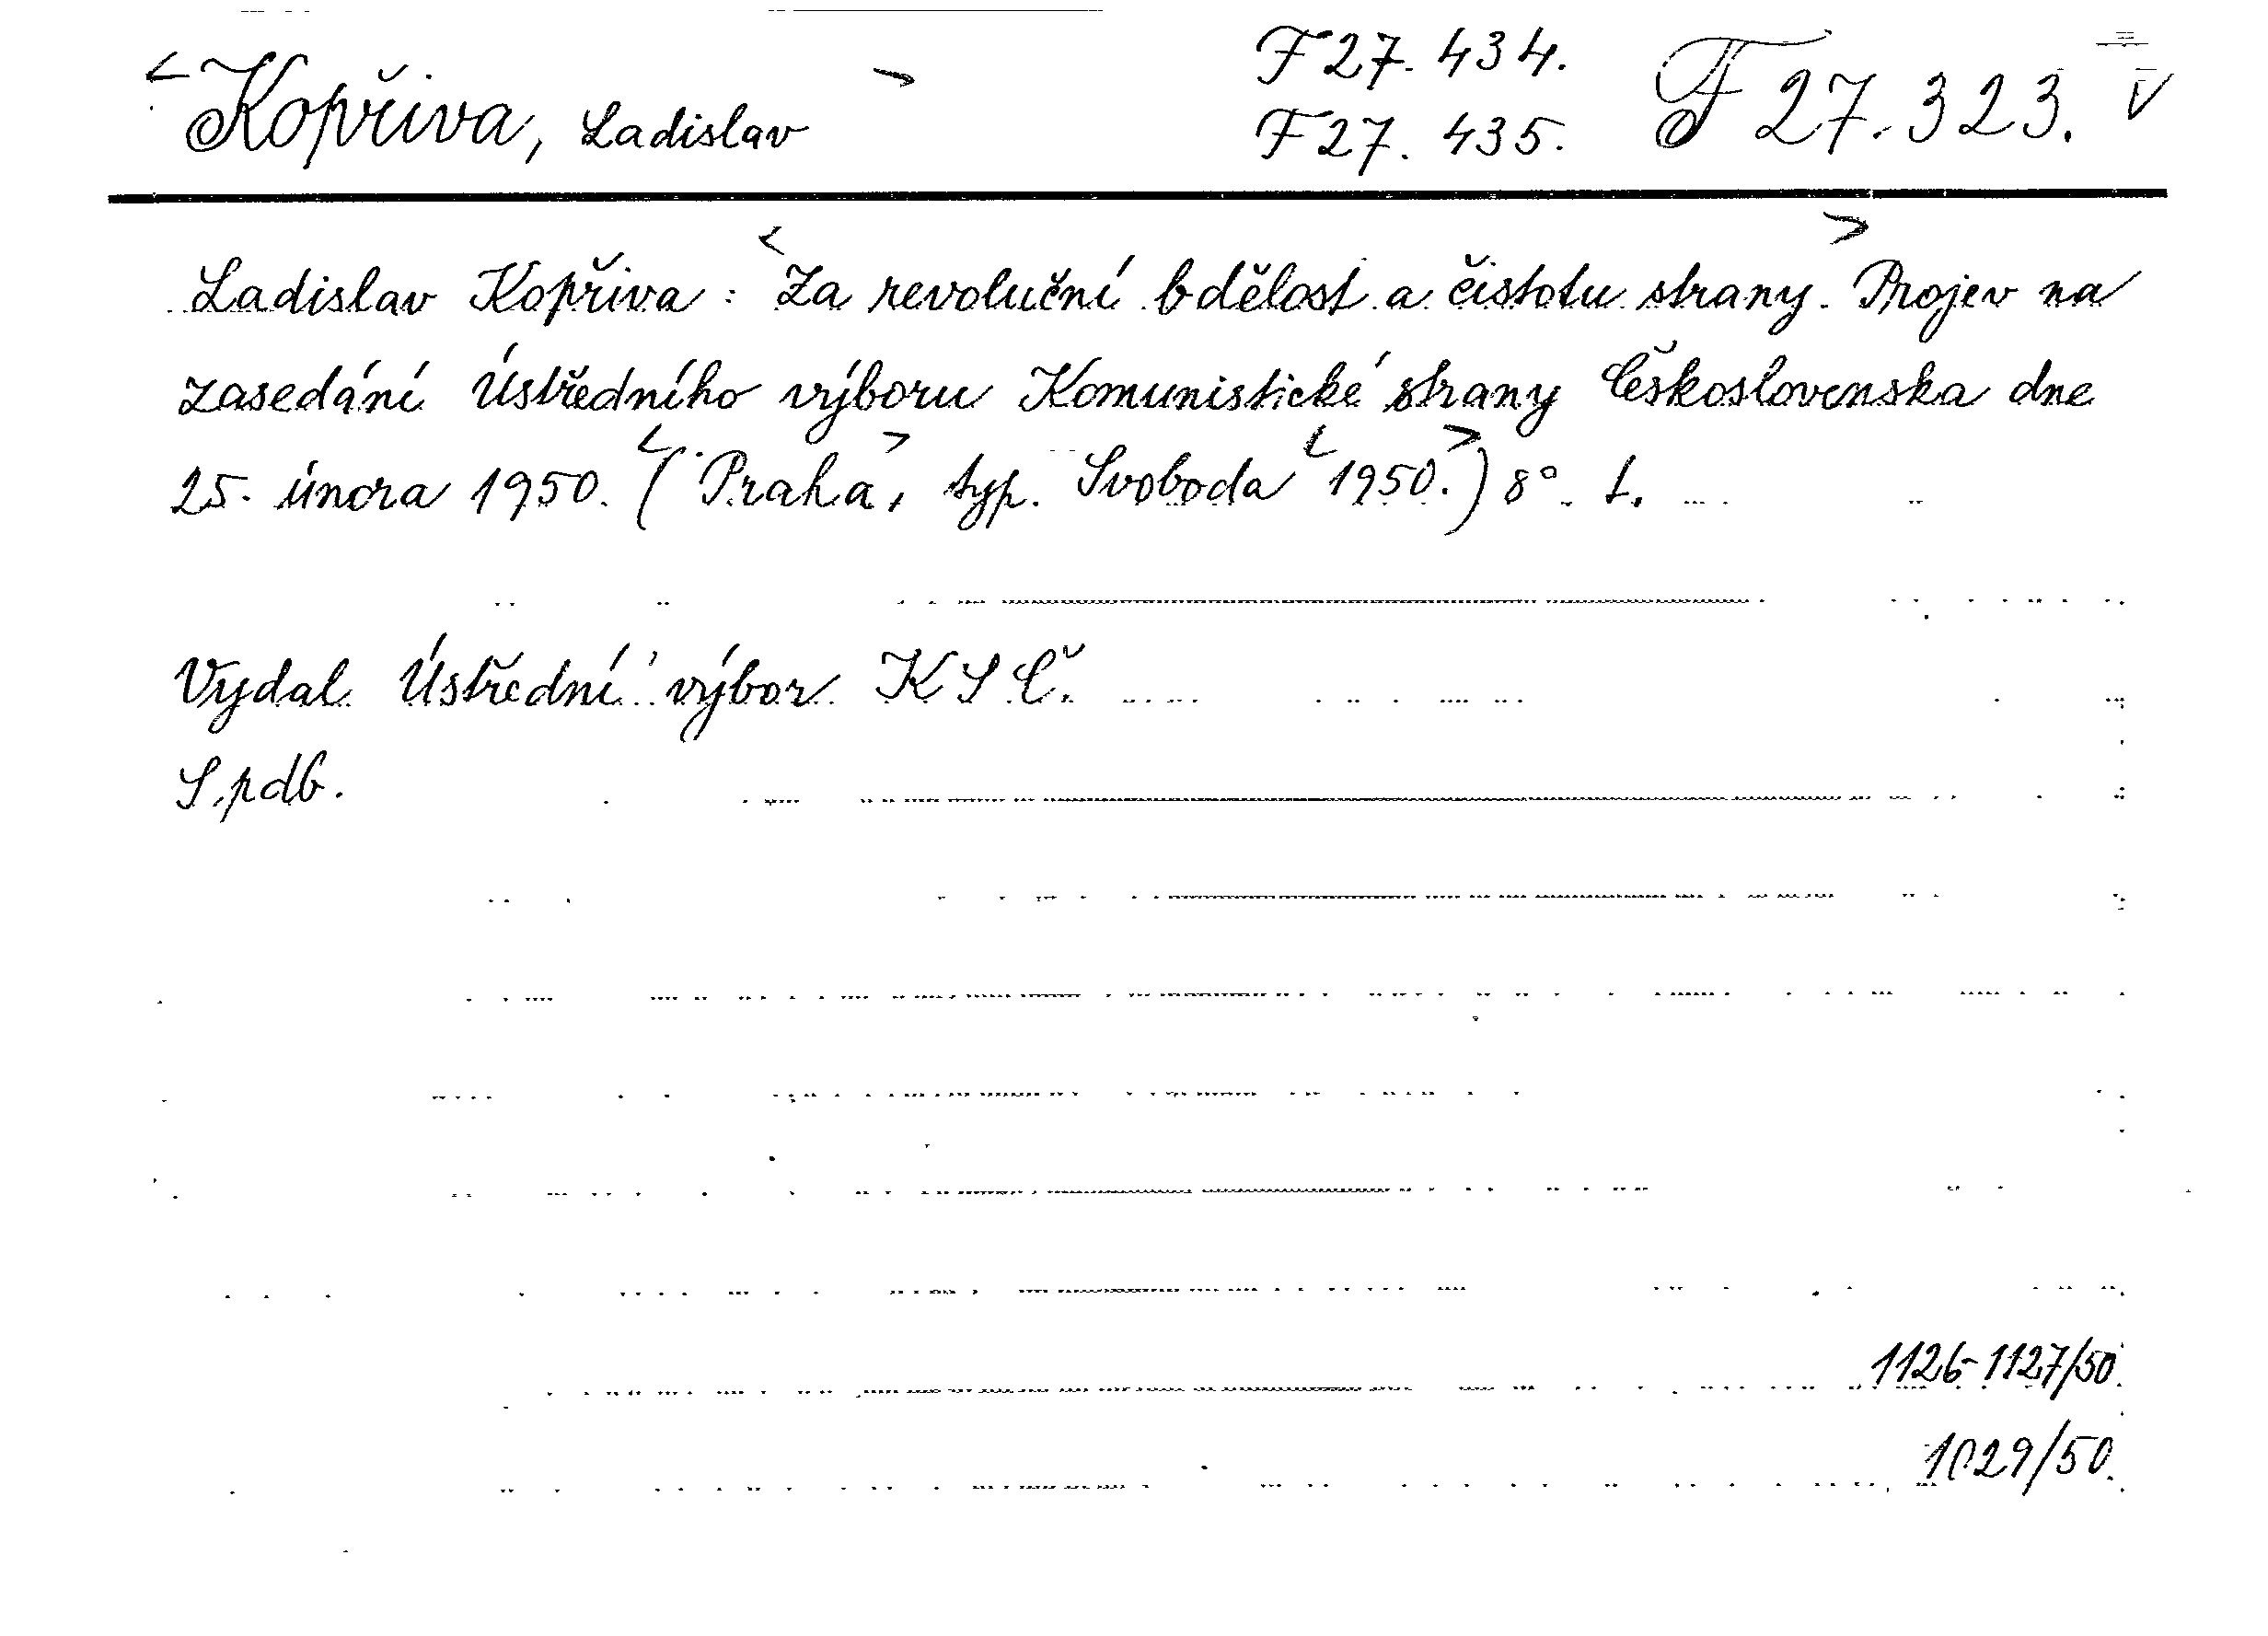 Kopřiva, Ladislav
F 27.434.
F 27.435.
F 27.323. V
Ladislav Kopřiva: Za revoluční bdělost a čistotu strany. Projev na
zasedání Ústředního výboru Komunistické strany Československa dne
25. února 1950. (Praha, typ. Svoboda 1950.) 8°.
Vydal Ústřední výbor KSČ.
S. pdb.
1126-1127/50.
1029/50.